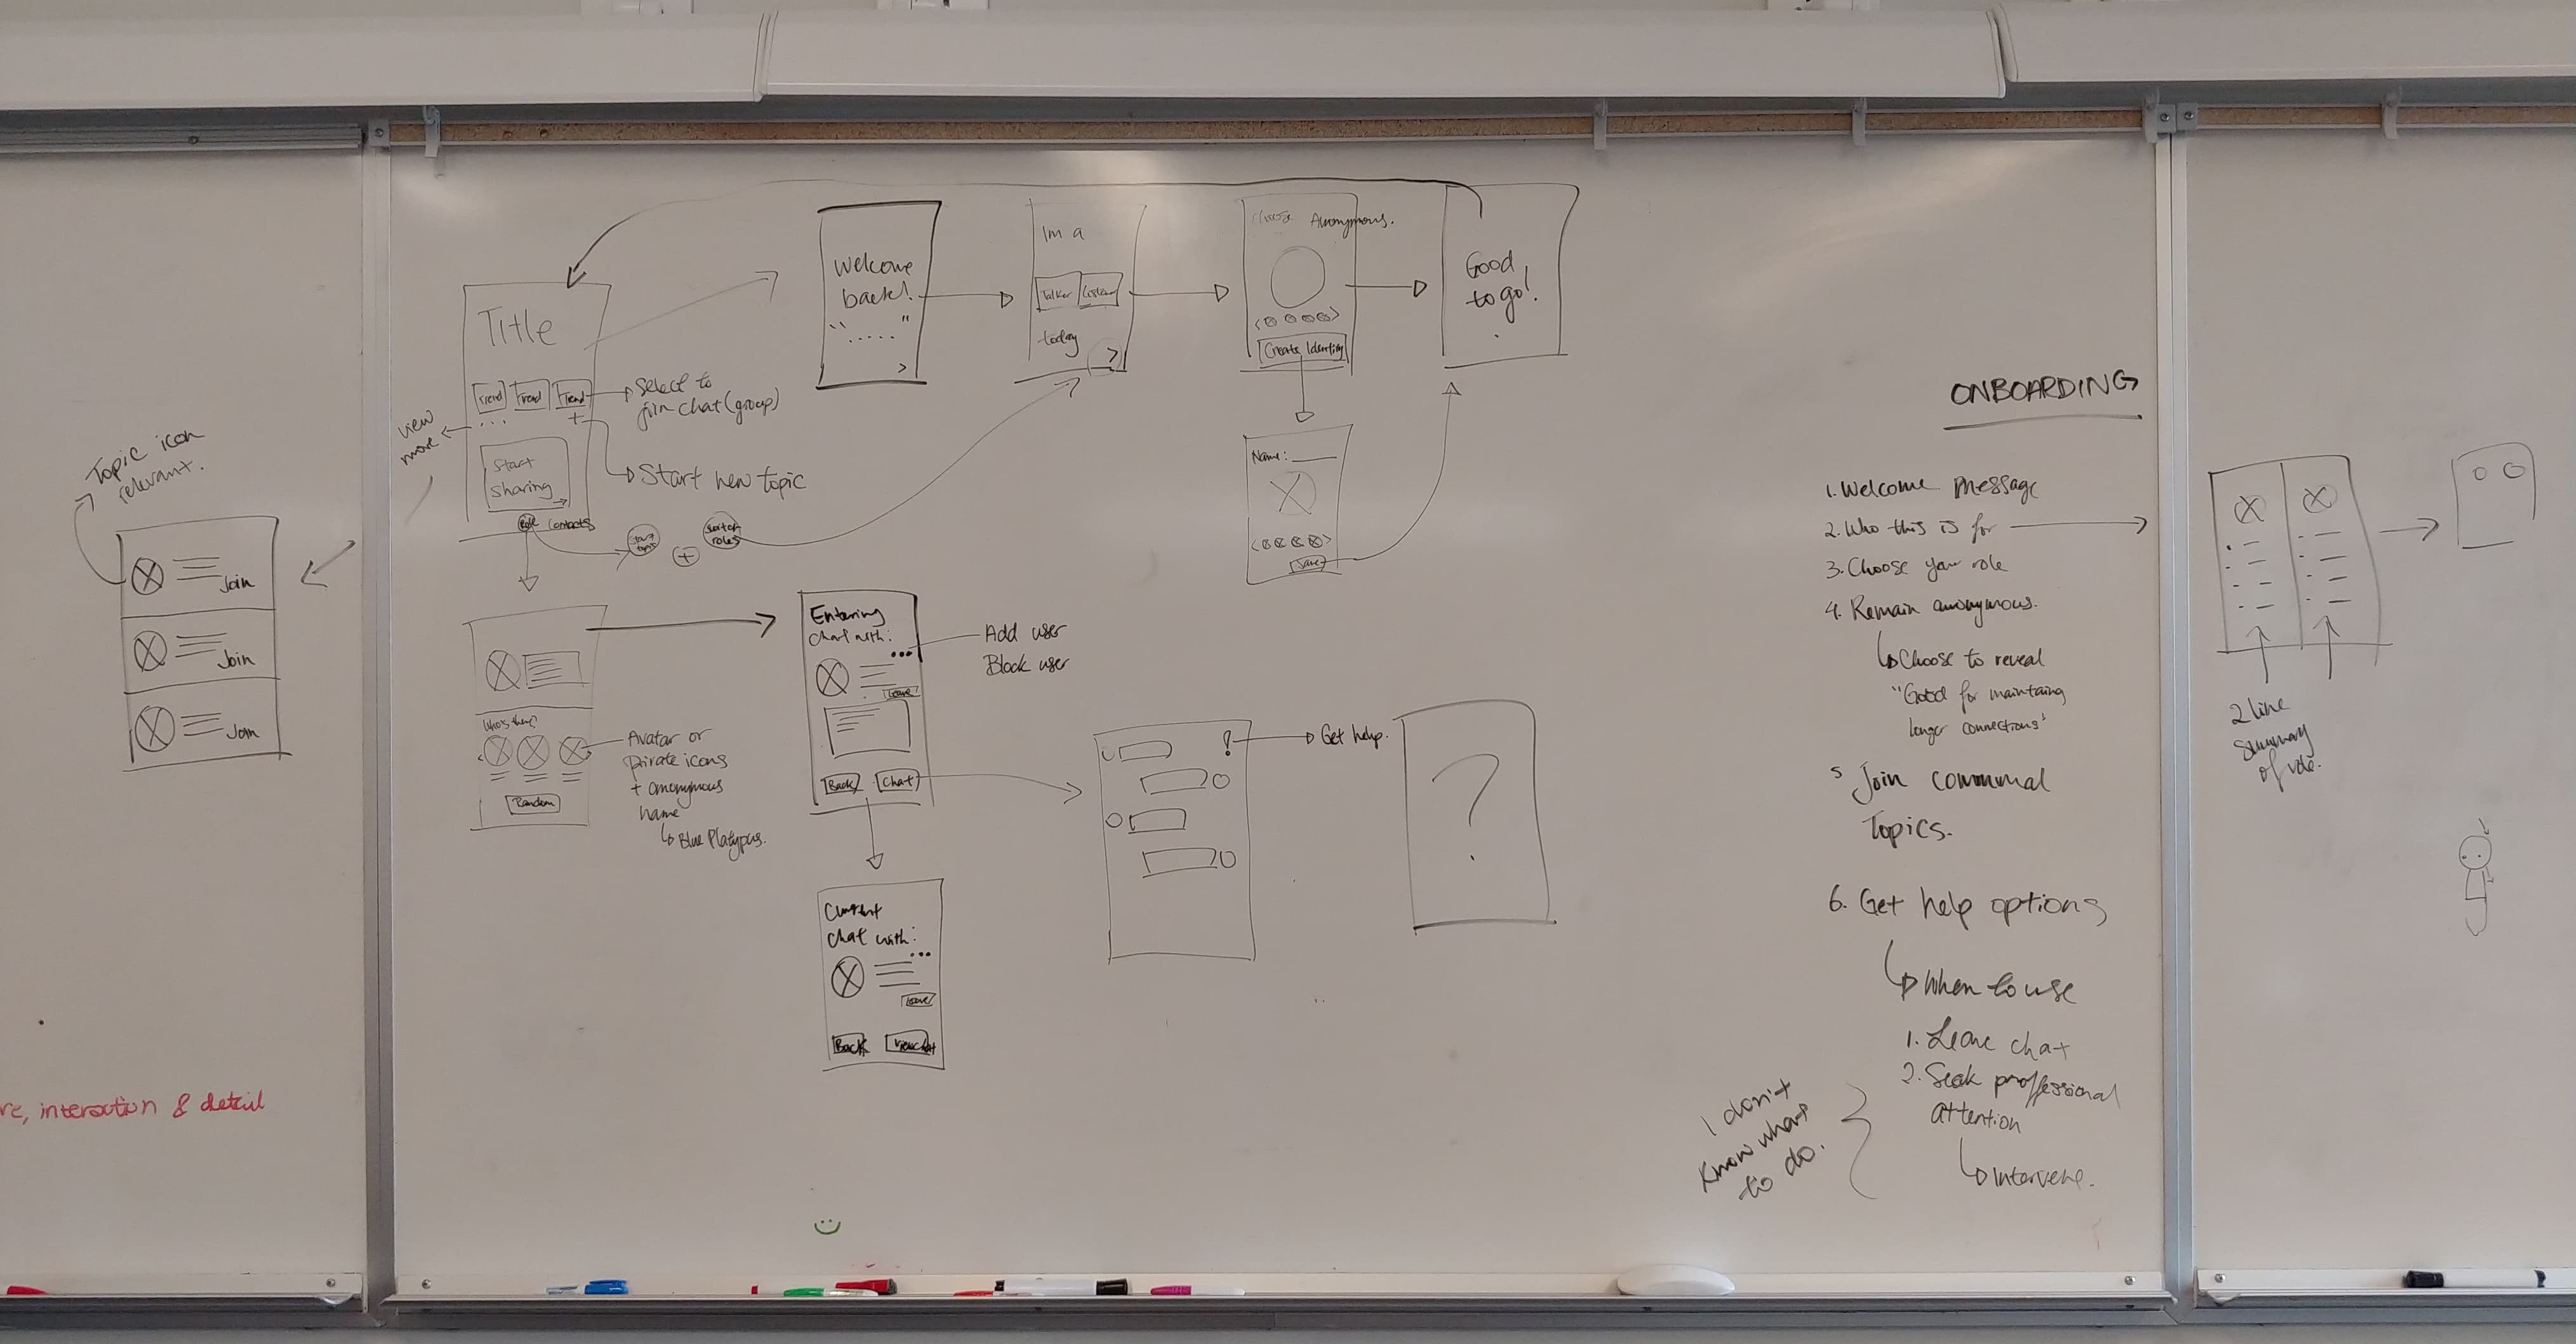 Topic icon
relevant.
Join
Join
Join
re, interaction & detail
Title
Trend Trend Trend
+
...
view
more
Start
sharing
Role Contacts
Select to
join chat (group)
Start new topic
Start
topic
+
Switch
roles
Welcome
back!
"....."
>
Im a
Talker Listener
today
>
Choose Anonymous.
Create Identity
Name:
Save
Good
to go!
Who's there?
Random
Avatar or
pirate icons
+ anonymous
name
Blue Platypus.
Entering
Chat with:
...
Leave
Back Chat
Add user
Block user
Current
Chat with:
...
Leave
Back View chat
!
Get help.
?
ONBOARDING
1. Welcome message
2. Who this is for
3. Choose your role
4. Remain anonymous.
Choose to reveal
"Good for maintaing
longer connections"
5 Join communal
Topics.
6. Get help options
When to use
1. Leave chat
2. Seak proffessional
attention
Intervene.
I don't
know what
to do.
2 line
summary
of role.